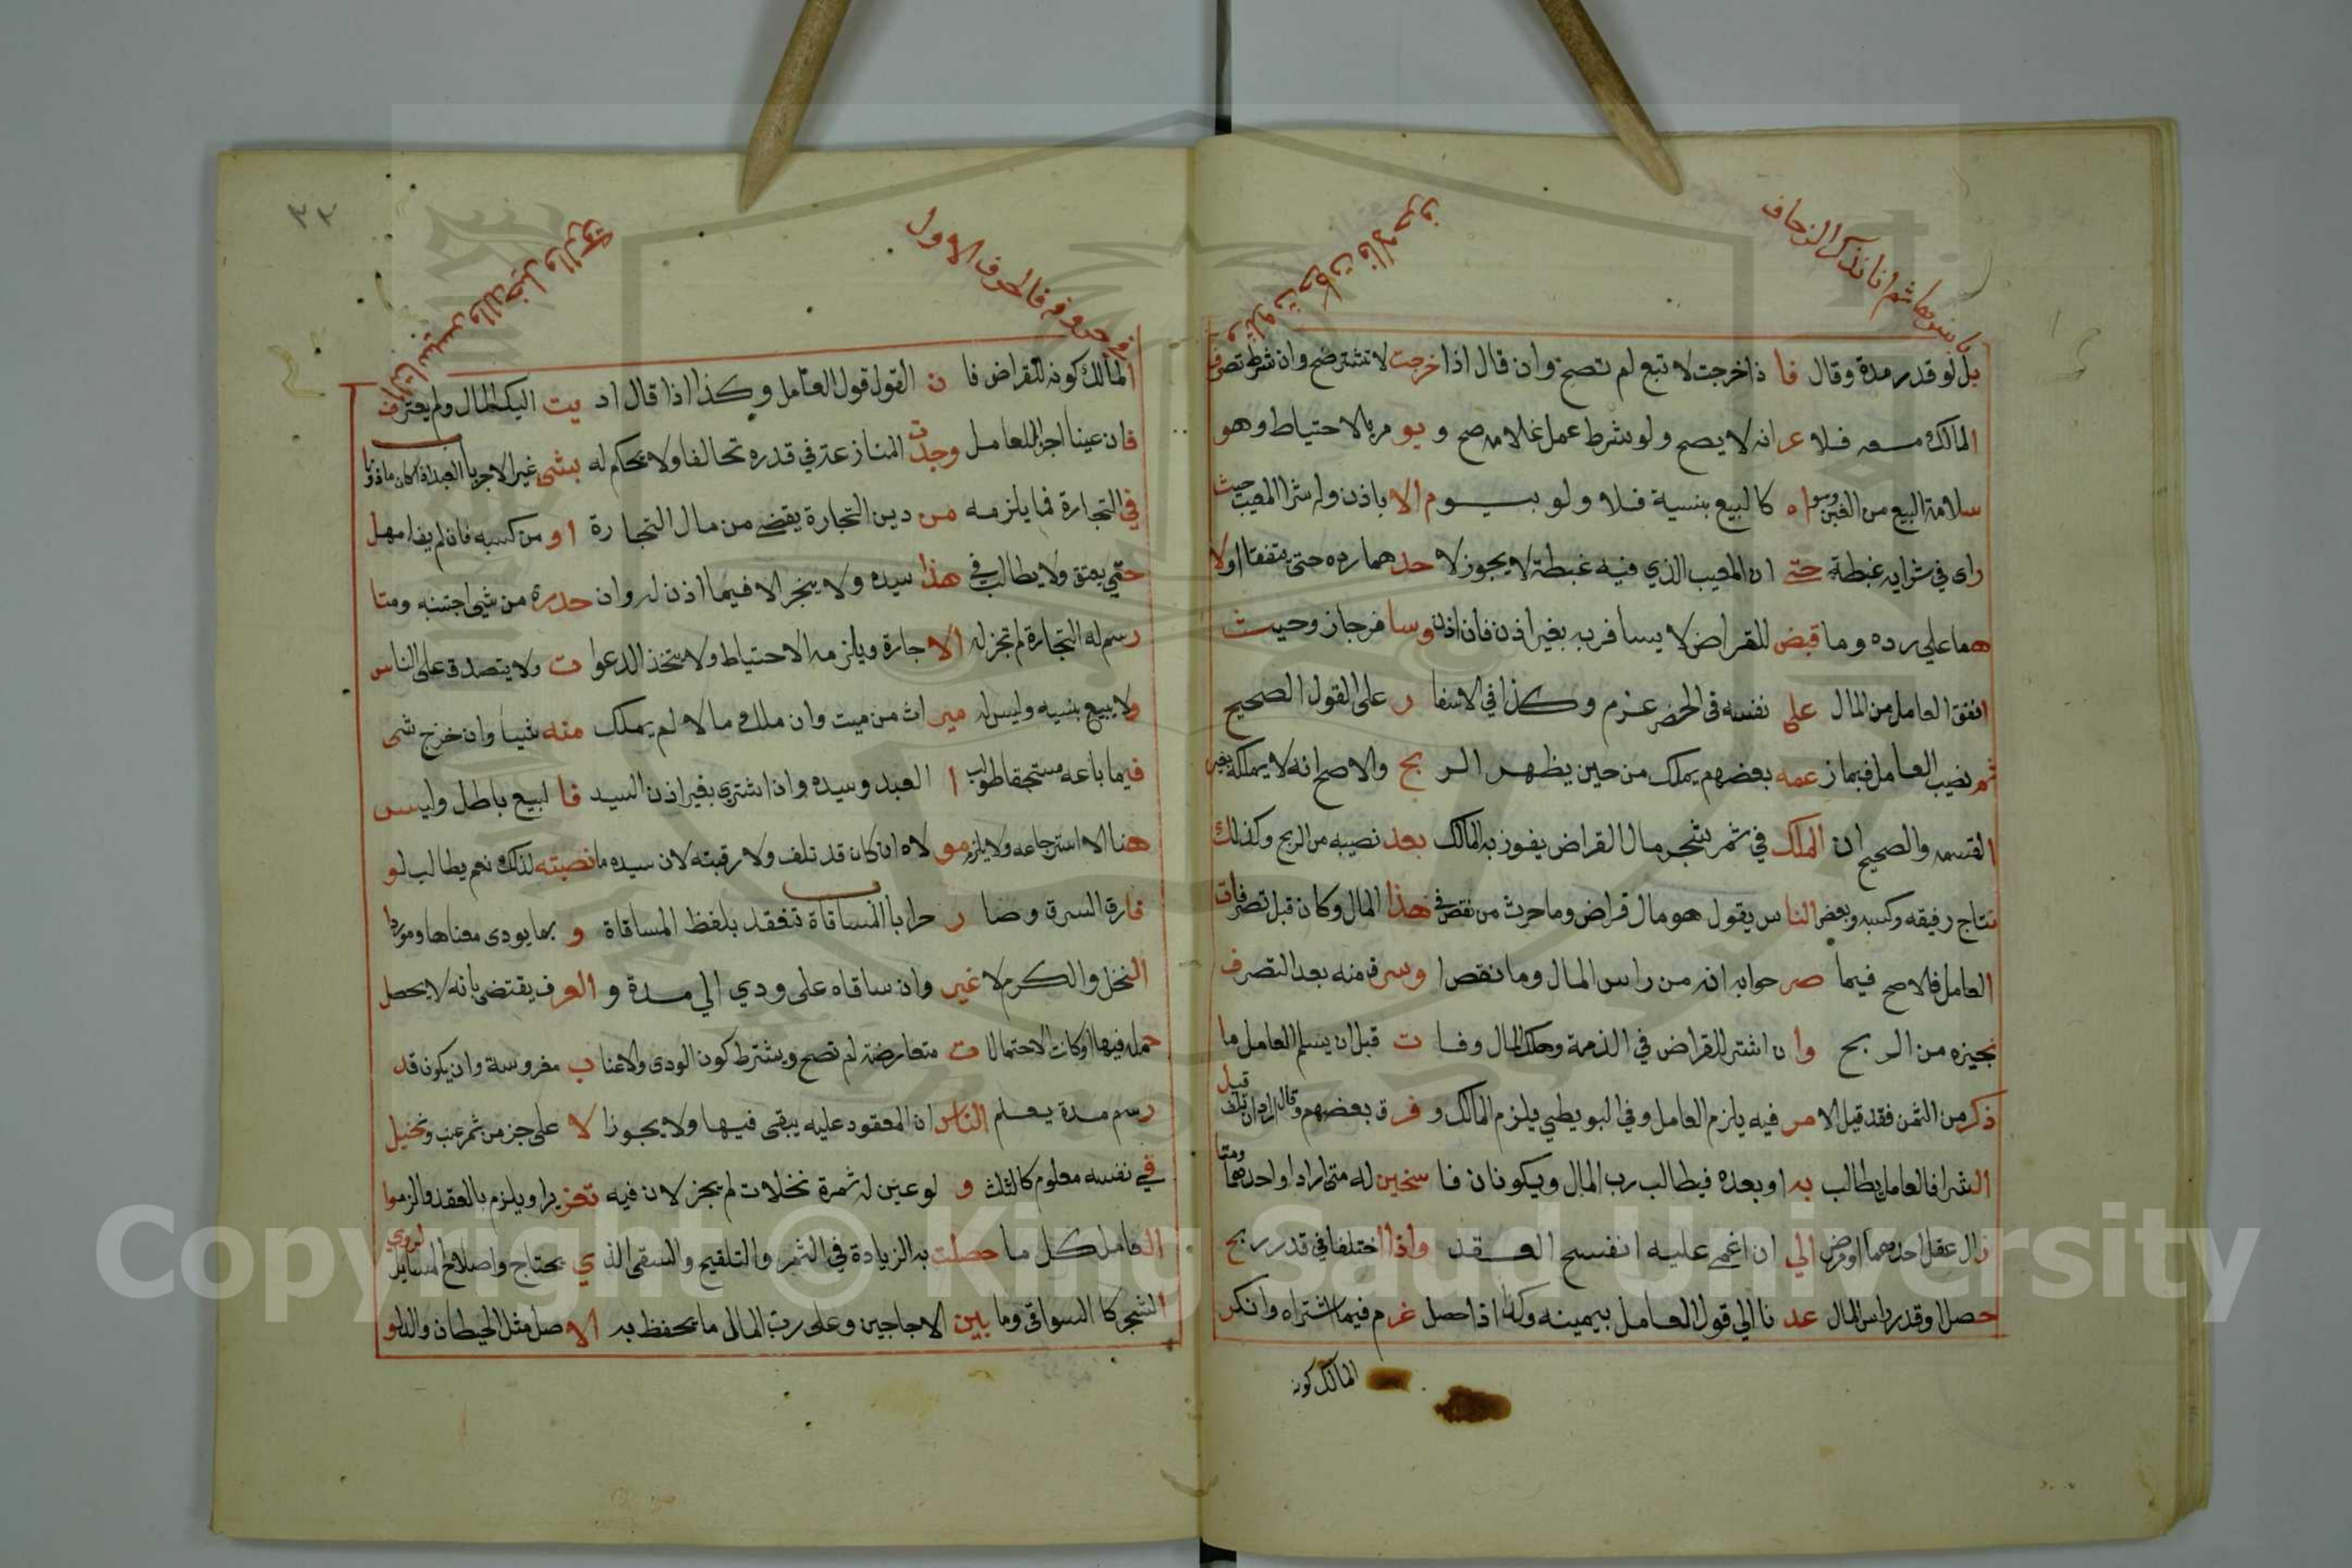 يا سين هاشم انا نذكر الزحاف
بل لو قدر مدة وقال فا ذا خرجت لا تبع لم تصح وان قال اذا خرجت لا تشتر صح وان شرط تصرف
المالك معه فلا عرانه لا يصح ولو شرط عمل غلامه صح و يو مر بالاحتياط وهو
سلامة البيع من الغبن وسواه كالبيع بنسية فلا ولو بسوم الا باذن وله شرا المعيب حيث
راى في شرايه غبطة حتى ان المعيب الذي فيه غبطة لا يجوز لا حدهما رده حتى يتفقا اولا
هما على رده وما قبض للقراض لا يسافر به بغير اذن فان اذن وسافر جاز وحيث
انفق العامل من المال على نفسه في الحضر غرم وكذا في الاسفا ر على القول الصحيح
ثم نصيب العامل فيما زعمه بعضهم يملك من حين يظهر الر بح والاصح انه لا يملكه بغير
القسمه والصحيح ان الملك في ثمر شجر مال القراض يفوز به المالك بعد نصيبه من الربح وكذلك
نتاج رفيقه وكسبه وبعض الناس يقول هو مال قراض وما حرث من نقص في هذا المال وكان قبل تصرفات
العامل فالاصح فيما صر حوا به انه من راس المال وما نقص ا وسرق منه بعد التصرف
نجيزه من الر بح وا ن اشتر للقراض في الذمة وهلك المال وفا ت قبل ان يسلم العامل ما
ذكر من الثمن فقد قيل الا مر فيه يلزم العامل وفي البويطي يلزم المالك و فرق بعضهم وقال اراد ان تلف قبل
الشرا فالعامل يطالب به او بعده فيطالب رب المال ويكونان فا سخين له متى اراد او احدهما ومتا
زال عقل احدهما او مرض الي ان اغمي عليه انفسح العقد واذا اختلفا في قدر ربح
حصل او قدر راس المال عد نا الي قول العامل بيمينه وكذا اذا حصل غرم فيما اشتراه وانكر
المالك كونه
٣٣
حروفه فالحرف الاول
المالك كونه للقراض فا ن القول قول العامل وكذا اذا قال اد يت اليك المال ولم يعترف
فان عينا اجرا للعامل وجدت المنازعة في قدره تحالفا ولا يحكم له بشي غير الاجر باب العبد اذا كان ماذونا
في التجارة فما يلزمه من دين التجارة يقضي من مال التجارة او من كسبه فان لم يف امهل
حتي يعتق ولا يطالب في هذا سيده ولا يتجر الا فيما اذن له وان حدره من شي اجتنبه ومتا
رسم له التجارة لم تجز له الا جارة ويلزمه الاحتياط ولا يتخذ الدعوا ت ولا يتصدق على الناس
ولا يبيع بنسيه وليس له مير اث من ميت وان ملك مالا لم يملك منه شيا وان خرج شي
فيما باعه مستحقا طولب ا العبد وسيده واذا اشتري بغير اذن السيد فا لبيع باطل وليس
هنا الا استرجاعه ولا يلزم مولاه ان كان قد تلف ولا رقبته لان سيده ما نصبته لذلك نعم يطالب لو
فارق السرق وصا ر حرا باب المساقاة تنعقد بلفظ المساقاة و بما يودي معناها وموردا
النخل والكرم لا غير وان ساقاه على ودي الي مدة و العرف يقتضي بانه لا يحصل
حمله فيها او كانت الاحتمالا ت متعارضة لم تصح ويشترط كون الودى والاعنا ب مغروسة وان يكون قد
رسم مدة يعلم الناس ان المعقود عليه يبقى فيها ولا يجوز ا لا على جز من ثمر عنب ونخيل
في نفسه معلوم كالثلث و لو عين له ثمرة نخلات لم يجز لان فيه تغريرا ويلزم بالعقد والزموا
العامل كل ما حصلت به الزيادة في الثمر والتلقيح والسقى الذ ي يحتاج واصلاح المسايل لروي
الشجر كا السواقي وما بين الاجاجين وعلى رب المال ما يحفظ به الاصل مثل الحيطان والدلو